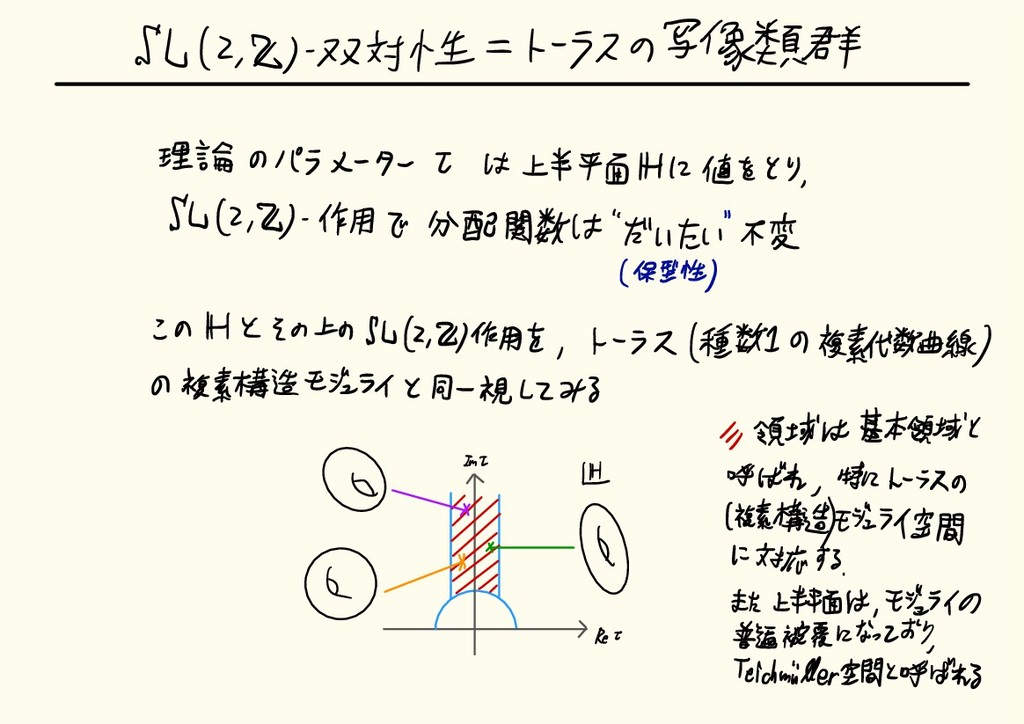 SL(2,ℤ)-双対性=トーラスの写像類群
理論のパラメーターτ は上半平面ℍに値をとり,
SL(2,ℤ)-作用で 分配関数は"だいたい"不変
(保型性)
このℍとその上のSL(2,ℤ)作用を, トーラス(種数1の複素代数曲線)
の複素構造モジュライと同一視してみる
領域は基本領域と
呼ばれ, 特にトーラスの
(複素構造)モジュライ空間
に対応する.
また上半平面は, モジュライの
普遍被覆になっており,
Teichmüller空間と呼ばれる
Imτ
ℍ
Reτ